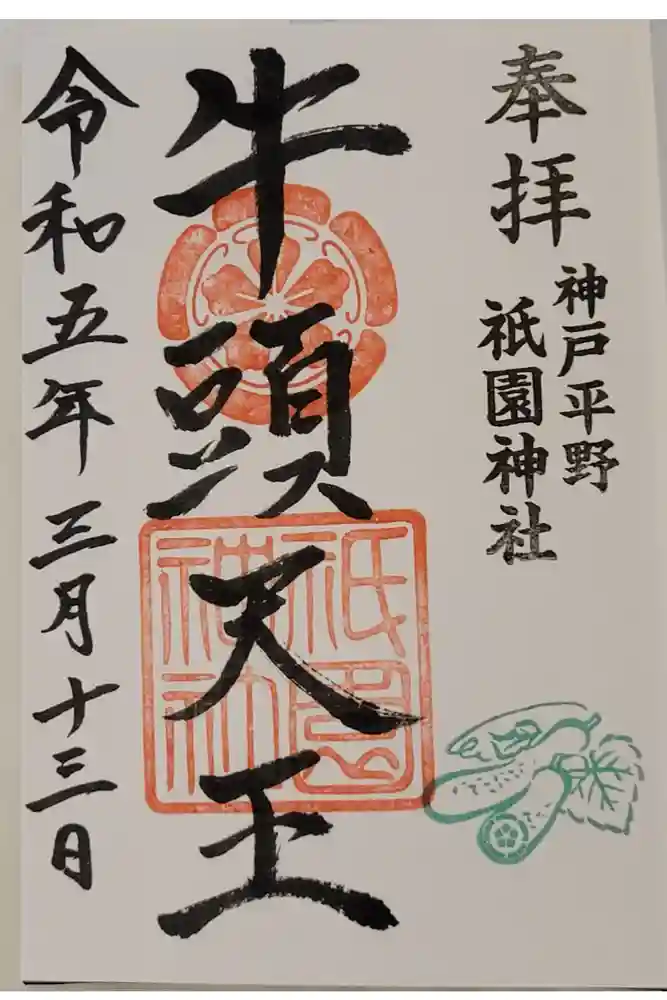 奉拝
神戸平野
祇園神社
牛頭天王
祇園
神社
令和五年三月十三日